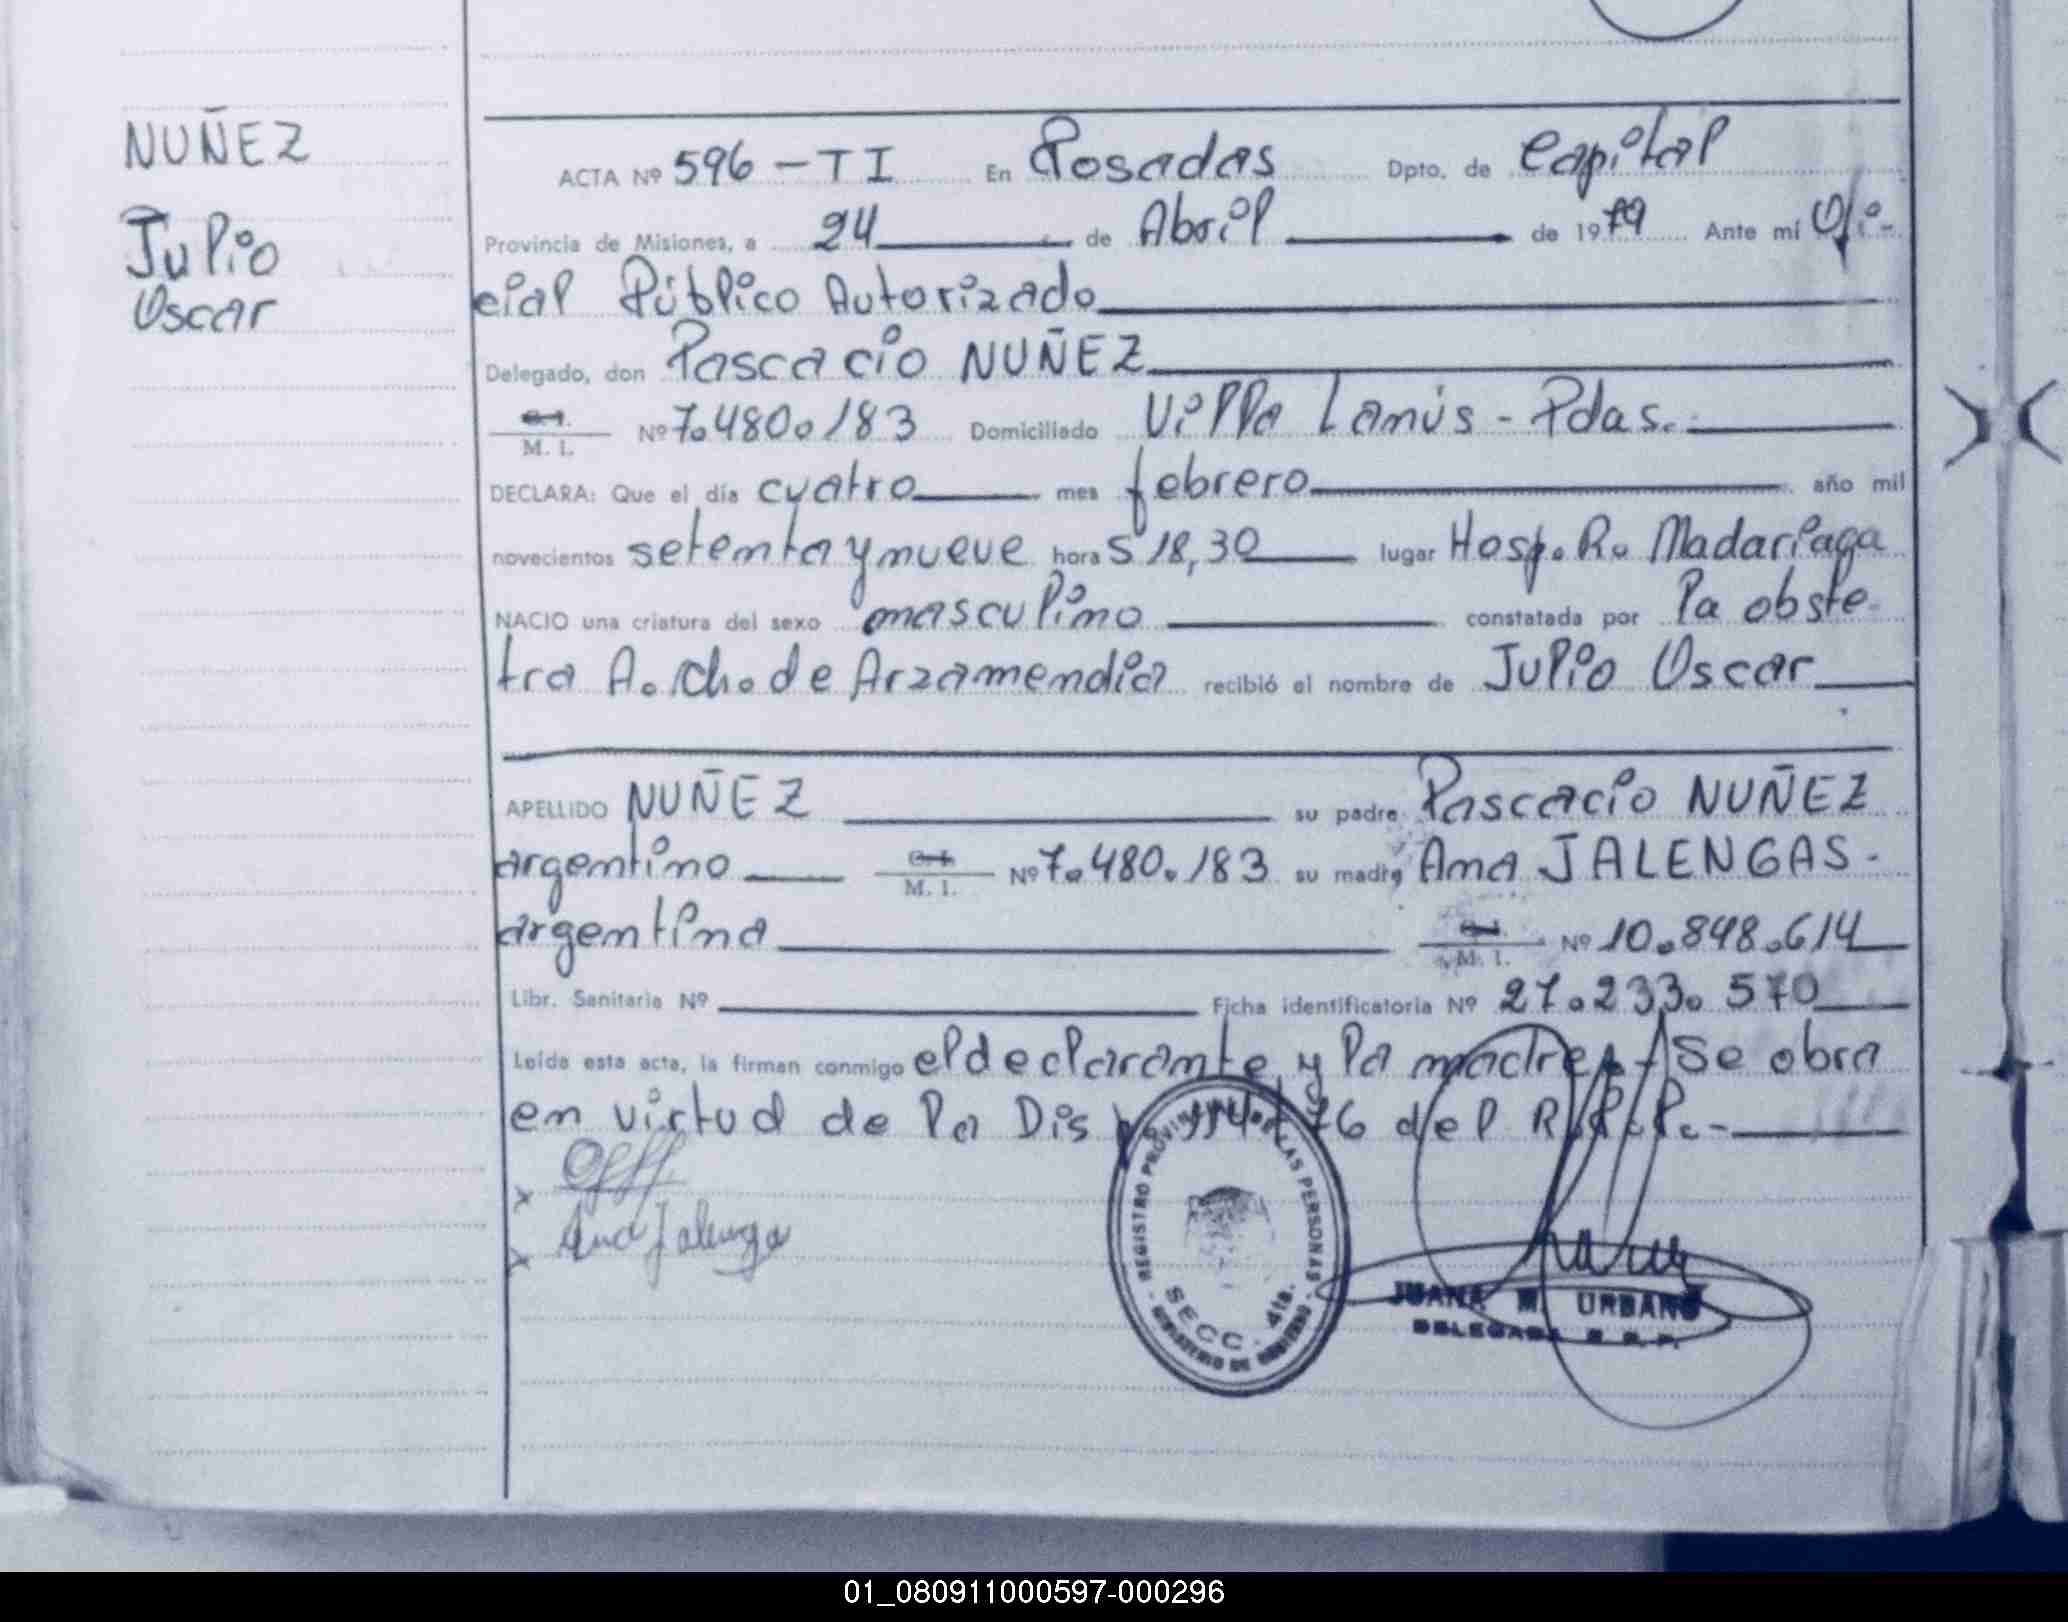 NUÑEZ
Julio
Oscar
ACTA Nº 596 - TI En Posadas Dpto. de Capital
Provincia de Misiones, a 24 de Abril de 1979 Ante mí Ofi-
cial Público Autorizado
Delegado, don Pascacio NUÑEZ
C.I. M. I. Nº 7.480.183 Domiciliado Villa Lanús - Pdas.
DECLARA: Que el día cuatro mes febrero año mil
novecientos setenta y nueve hora s 18,30 lugar Hosp. R. Madariaga
NACIO una criatura del sexo masculino constatada por la obste-
tra A. Ch. de Arzamendia recibió el nombre de Julio Oscar
APELLIDO NUÑEZ su padre Pascacio NUÑEZ
argentino C.I. M. I. Nº 7.480.183 su madre Ana JALENGAS -
argentina C.I. M. I. Nº 10.848.614
Libr. Sanitaria Nº Ficha identificatoria Nº 27.233.570
Leída esta acta, la firman conmigo el declarante y la madre. - Se obra
en virtud de la Dis 76 del R.P.P.-
x
x Ana Jalenga
REGISTRO PROVINCIAL DE LAS PERSONAS
SECC. 4ta.
MINISTERIO DE GOBIERNO
JUANA M. URBANO
DELEGADA R. P. P.
01_080911000597-000296